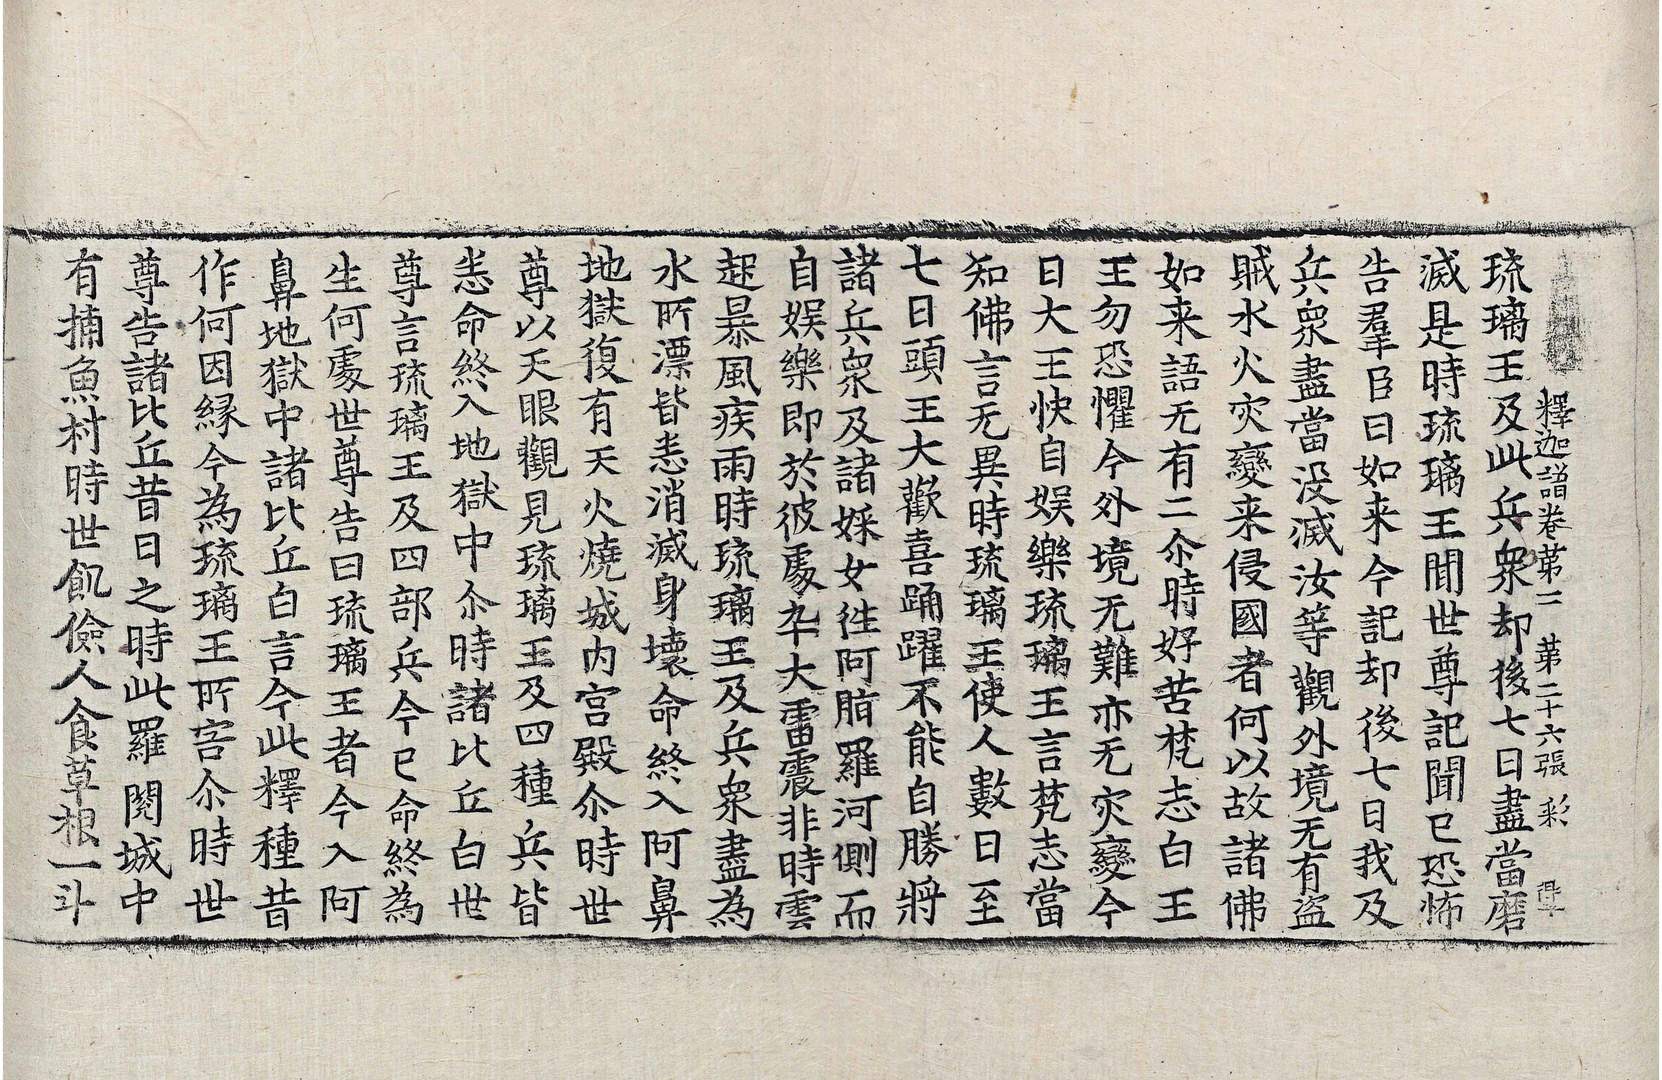 釋迦譜卷苐二 苐二十六張 彩
琉璃王及此兵衆却後七日盡當磨
滅是時琉璃王聞世尊記聞已恐怖
告羣臣曰如来今記却後七日我及
兵衆盡當没滅汝等觀外境无有盗
賊水火灾變来侵國者何以故諸佛
如来語无有二尒時好苦梵志白王
王勿恐懼今外境无難亦无灾變今
日大王快自娱樂琉璃王言梵志當
知佛言无異時琉璃王使人數日至
七日頭王大歡喜踊躍不能自勝將
諸兵衆及諸婇女往阿脂羅河側而
自娱樂即於彼處卒大雷震非時雲
起暴風疾雨時琉璃王及兵衆盡為
水所漂皆悉消滅身壞命終入阿鼻
地獄復有天火燒城内宫殿尒時世
尊以天眼觀見琉璃王及四種兵皆
悉命終入地獄中尒時諸比丘白世
尊言琉璃王及四部兵今已命終為
生何處世尊告曰琉璃王者今入阿
鼻地獄中諸比丘白言今此釋種昔
作何因緣今為琉璃王所害尒時世
尊告諸比丘昔日之時此羅閱城中
有捕魚村時世飢儉人食草根一斗